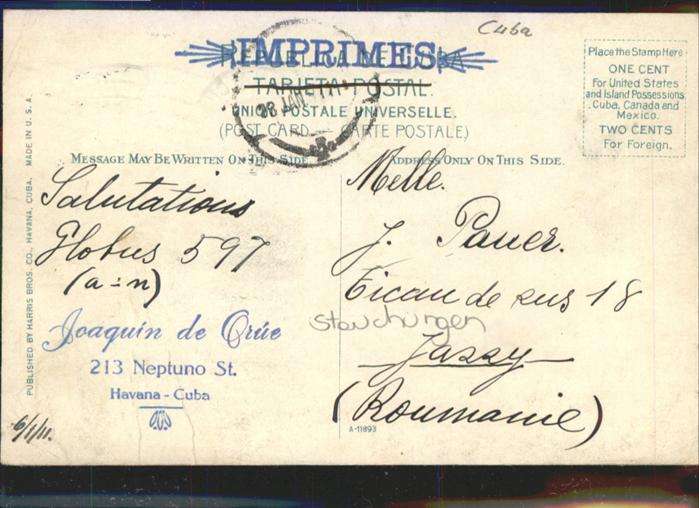 Cuba
IMPRIMES
TARJETA POSTAL
UNION POSTALE UNIVERSELLE.
(POST CARD — CARTE POSTALE)
28 JAN
Place the Stamp Here
ONE CENT
For United States
and Island Possessions,
Cuba, Canada and
Mexico.
TWO CENTS
For Foreign.
MESSAGE MAY BE WRITTEN ON THIS SIDE.
ADDRESS ONLY ON THIS SIDE.
Salutations
Globus 597
(a=n)
Joaquín de Orúe
213 Neptuno St.
Havana - Cuba
6/1/11.
Melle.
J. Pauer.
Ticau de sus 18
Stauchungen
Jassy
(Roumanie)
A-11893
PUBLISHED BY HARRIS BROS. CO., HAVANA, CUBA. MADE IN U. S. A.